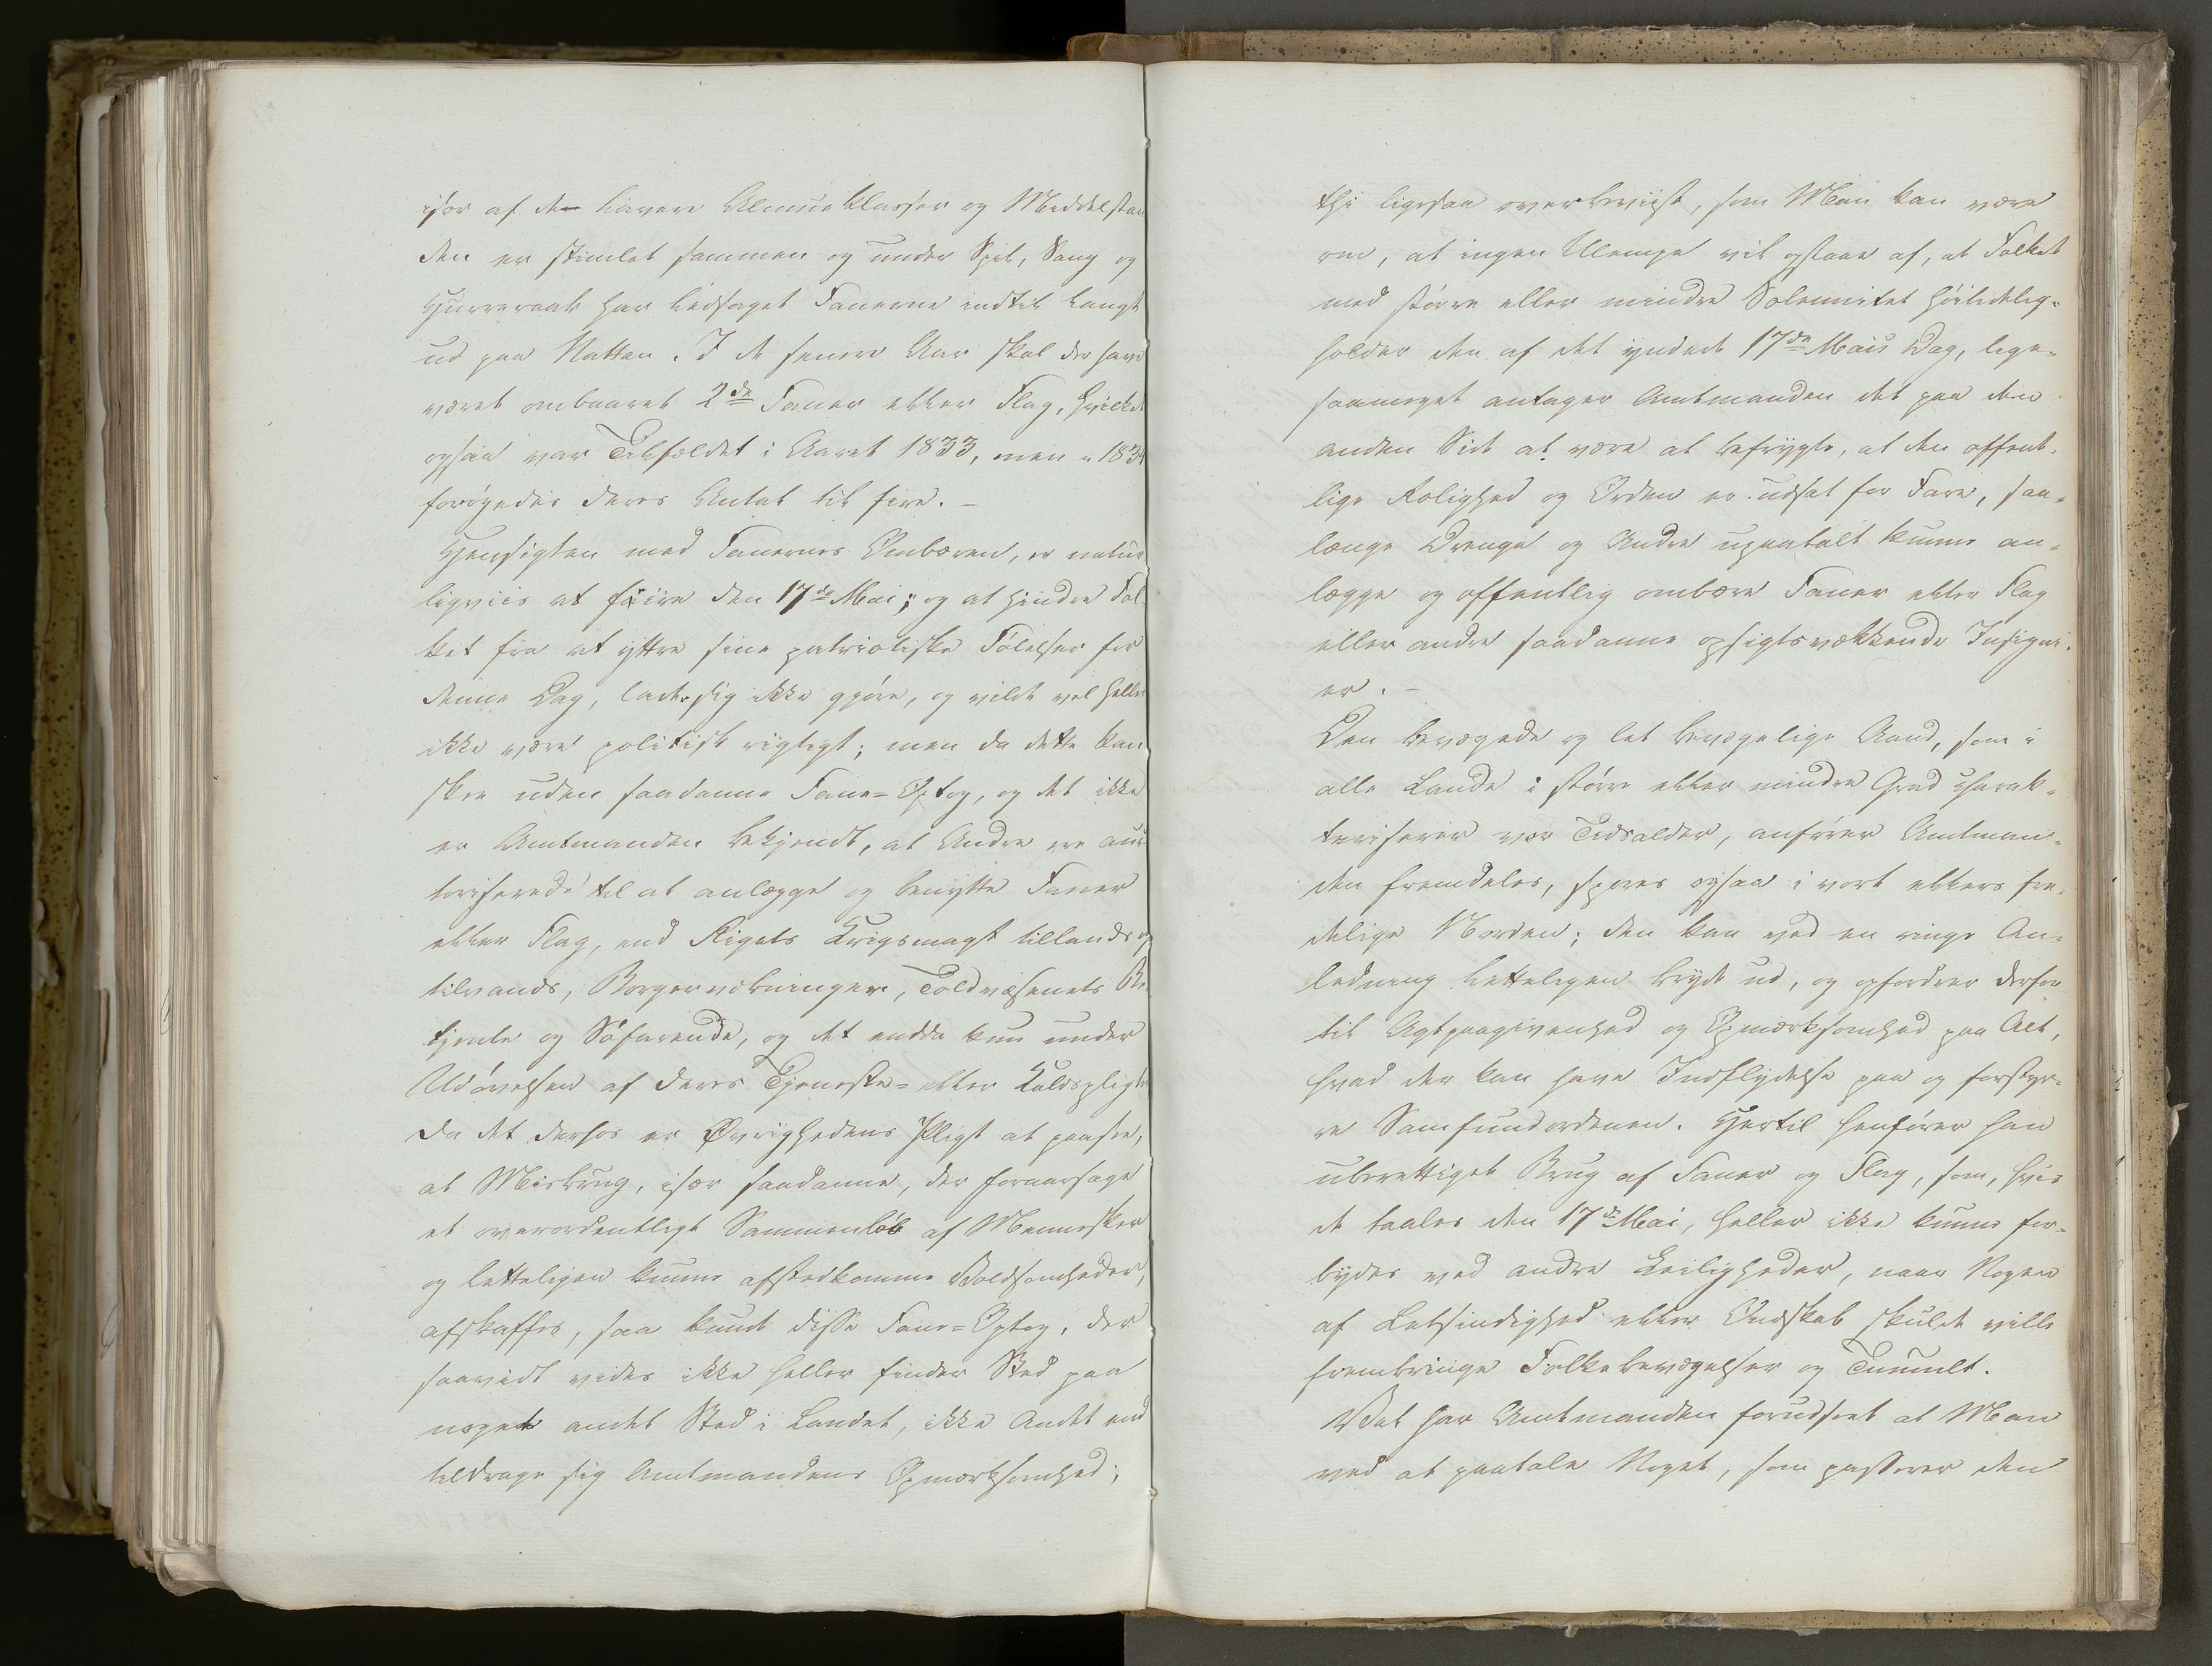 især af de lavere Almueklasser og Middelstan
den er stimlet sammen og under Spil, Sang og
Hurraraab har ledsaget Fanerne indtil langt
ud paa Natten. I de senere Aar skal der have
været ombaaret 2de Faner eller Flag, hvilket
ogsaa var Tilfældet i Aaret 1833, men i 1834
forøgedes deres Antal til fire. –
Hensigten med Fanernes Ombæren, er natur
ligviis at feire den 17de Mai; og at hindre Fol
ket fra at yttre sine patriotiske Følelser for
denne Dag, lader sig ikke gjøre, og vilde vel heller
ikke være politisk rigtigt; men da dette kan
skee uden saadanne Fane-Optog, og det ikke
er Amtmanden bekjendt, at Andre ere auc
toriserede til at anlægge og benytte Faner
eller Flag, end Rigets Krigsmagt tillands og
tilvands, Borgervæbningen, Toldvæsenets Be
tjente og Søfarende, og det endda kun under
Udøvelsen af deres Tjeneste- eller Kaldspligter
da det derhos er Øvrighedens Pligt at paasee,
at Misbrug, især saadanne, der foraarsage
et overordentligt Sammenløb af Mennesker
og letteligen kunne afstedkomme Voldsomheder,
afskaffes, saa kunde disse Fane-Optog, der
saavidt vides ikke heller finder Sted paa
noget andet Sted i Landet, ikke Andet end
tildrage sig Amtmandens Opmærksomhed;
thi ligesaa overbeviist, som Man kan være
om, at ingen Ulempe vil opstaae af, at Folket
med større eller mindre Solennitet høitidelig-
holder den af det yndede 17de Mais Dag, lige-
saameget antager Amtmanden det paa den
anden Side at være at befrygte, at den offent-
lige Rolighed og Orden er udsat for Fare, saa-
længe Drenge og Andre upaatalt kunne an-
lægge og offentlig ombære Faner eller Flag
eller andre saadanne opsigtsvækkende Insigni-
er. –
Den bevægede og let bevægelige Aand, som i
alle Lande i større eller mindre Grad charak-
teriserer vor Tidsalder, anfører Amtman-
den fremdeles, spores ogsaa i vort ellers fre-
delige Norden; den kan ved en ringe An-
ledning letteligen bryde ud, og opfordrer derfor
til Agtpaagivenhed og Opmærksomhed paa Alt,
hvad der kan have Indflydelse paa og forstyr-
re Samfundsordenen. Hertil henfører han
uberettiget Brug af Faner og Flag, som, hvis
de taales den 17de Mai, heller ikke kunne for-
bydes ved andre Leiligheder, naar Nogen
af Letsindighed eller Ondskab skulde ville
frembringe Folkebevægelser og Tumult.
Vel har Amtmanden forudseet at Man
ved at paatale Noget, som passerer den